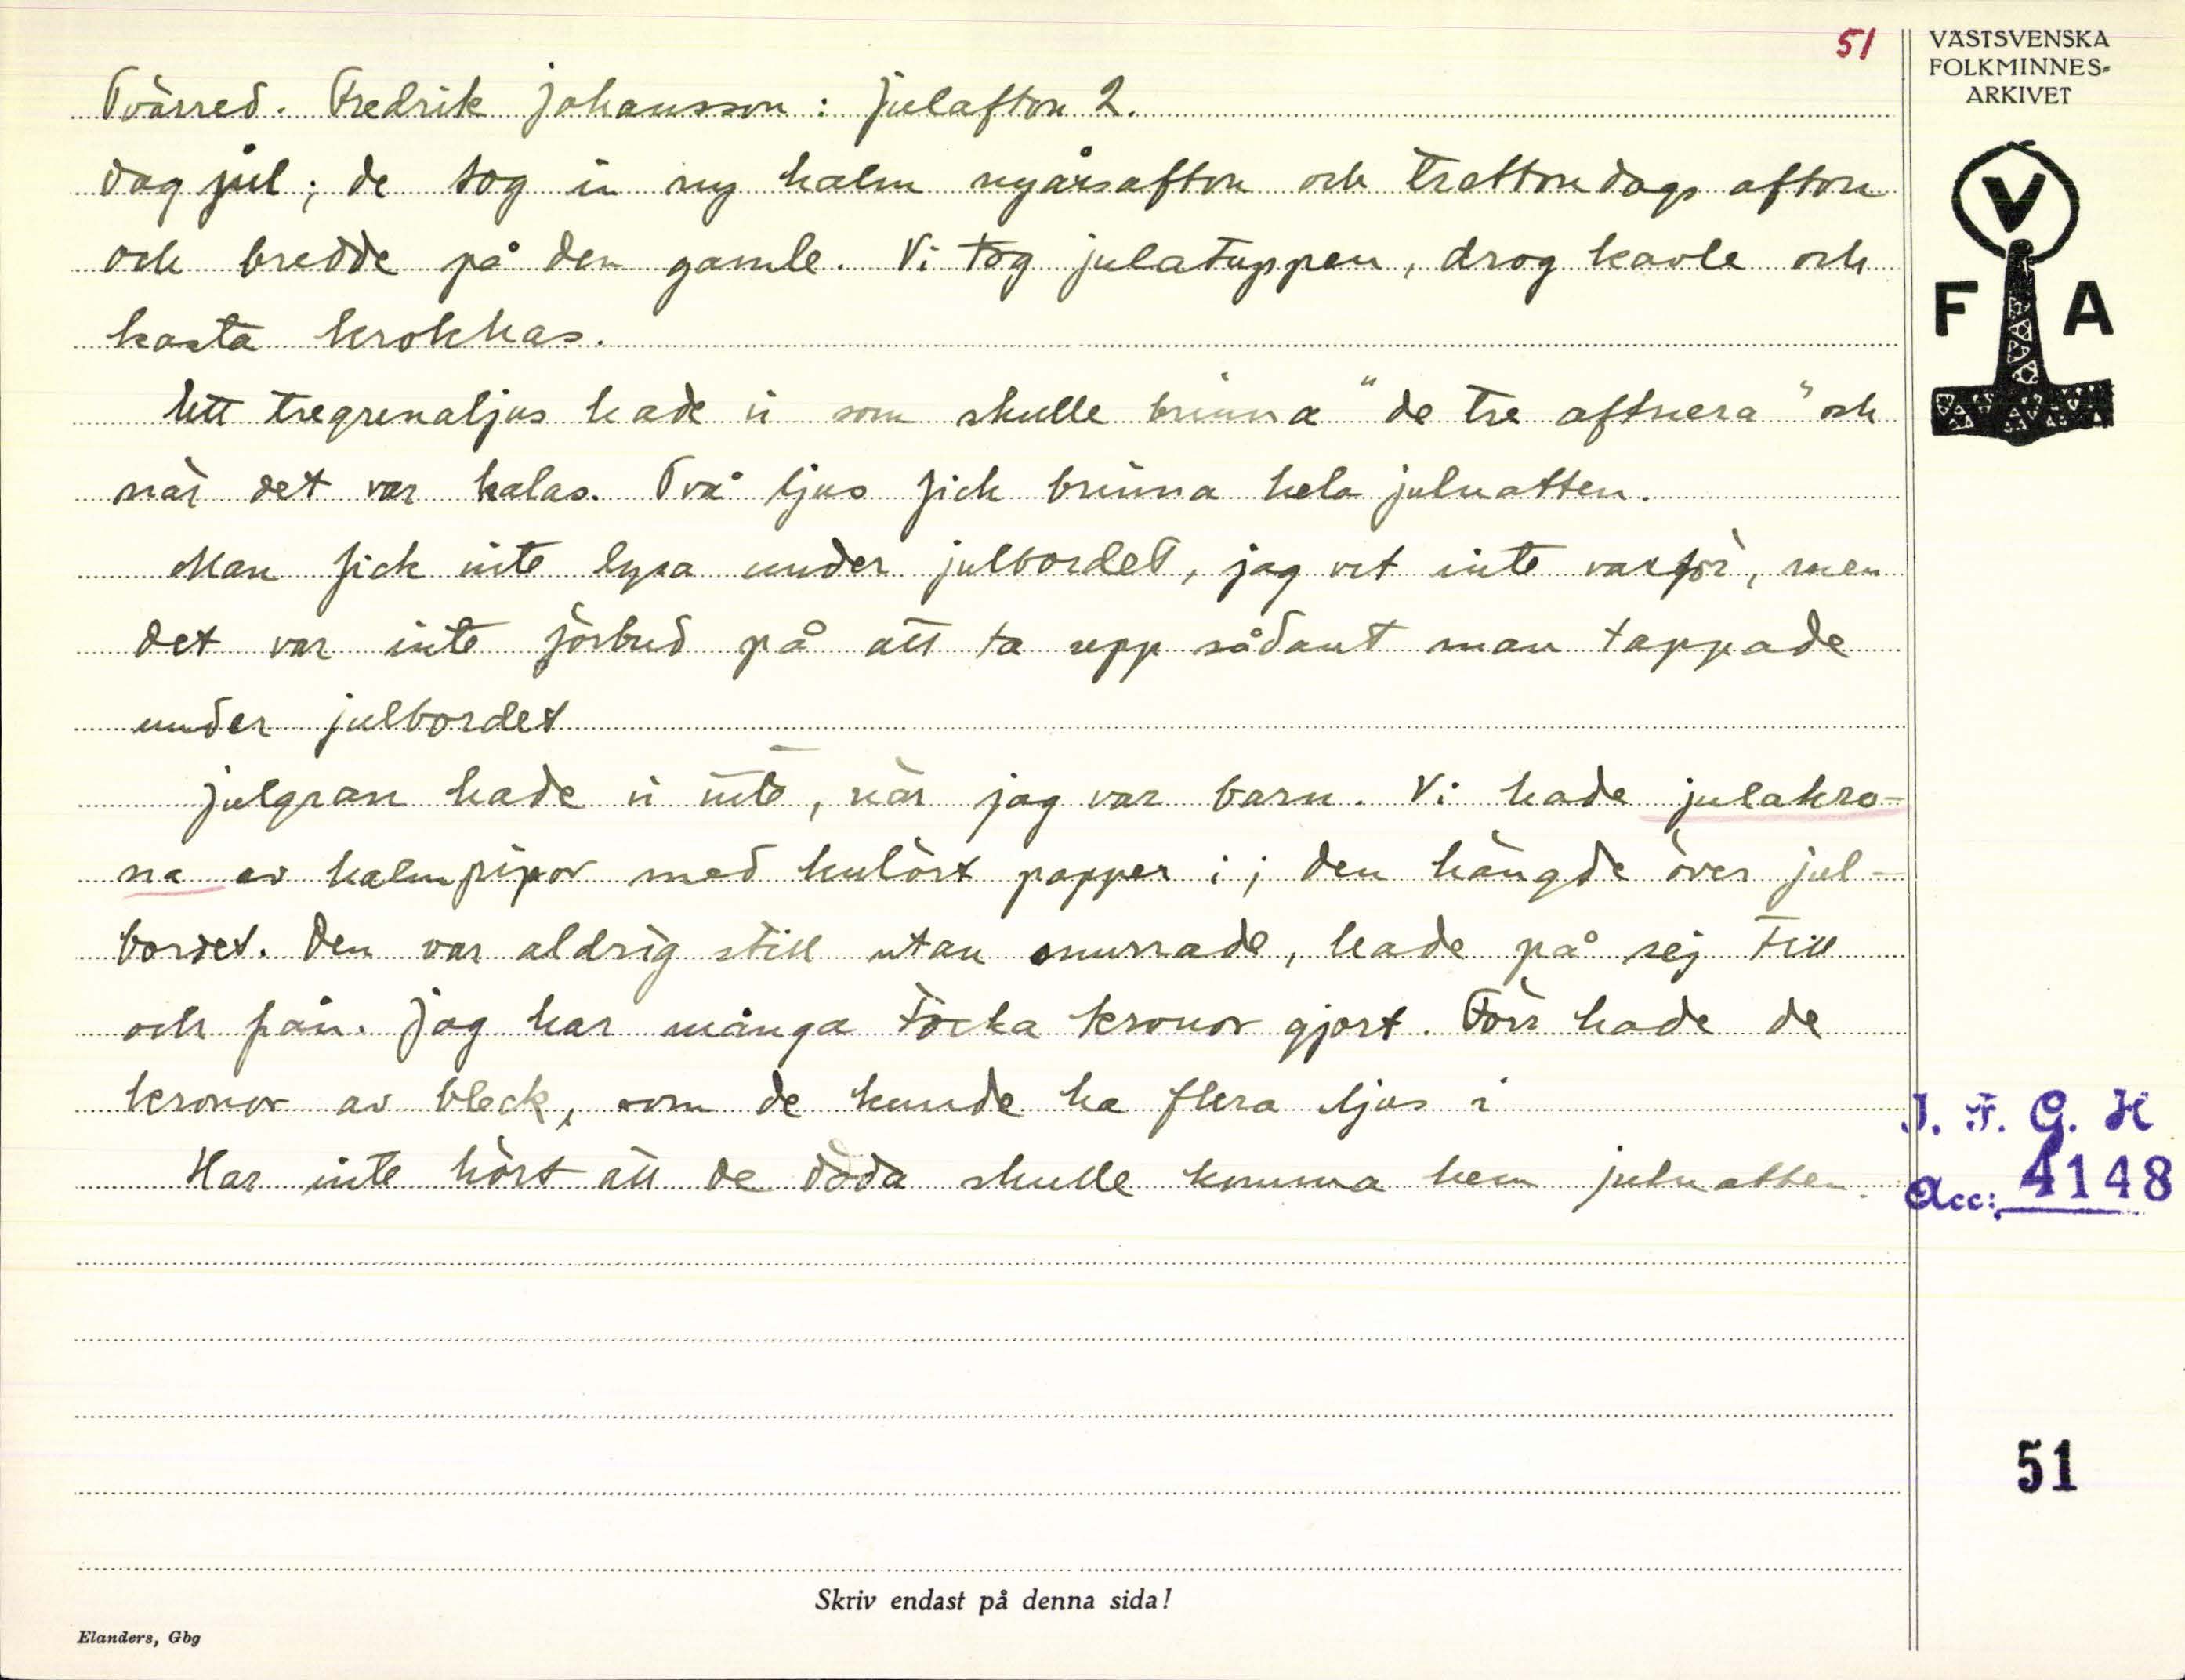 51
VÄSTSVENSKA
FOLKMINNES-
ARKIVET
V
F A
Tvärred. Fredrik Johansson: Julafton 2.
dag jul; de tog in ny halm nyårsafton och trettondags afton
och bredde på den gamle. Vi tog julatuppen, drog kavle och
kasta krokhas.
Ett tregrenaljus hade vi som skulle brinna "de tre aftnera" och
när det var kalas. Två ljus fick brinna hela julnatten.
Man fick inte lysa under julbordet, jag vet inte varför, men
det var inte förbud på att ta upp sådant man tappade
under julbordet
Julgran hade vi inte, när jag var barn. Vi hade julakro-
na av halmpipor med kulört papper i; den hängde över jul-
bordet. Den var aldrig still utan snurrade, hade på sej till
och från. Jag har många töcka kronor gjort. Förr hade de
kronor av bleck, som de kunde ha flera ljus i
Har inte hört att de döda skulle komma hem julnatten.
I. F. G. H
Acc: 4148
51
Skriv endast på denna sida!
Elanders, Gbg